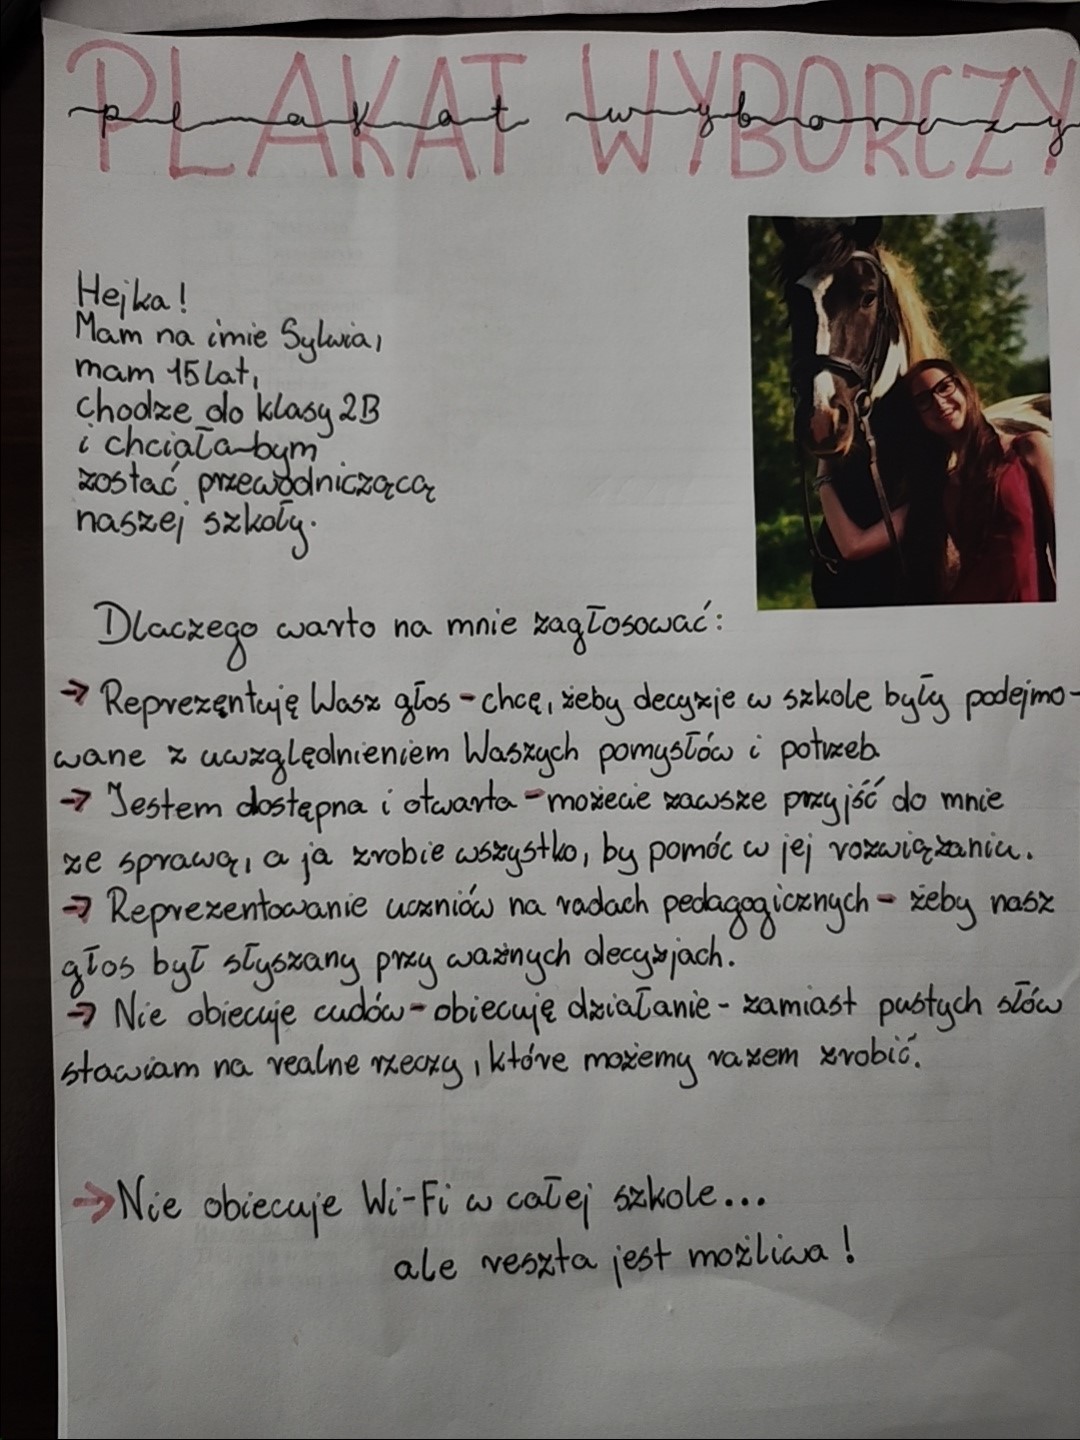 PLAKAT WYBORCZY
plakat wyborczy
Hejka!
Mam na imie Sylwia,
mam 15 lat,
chodze do klasy 2B
i chciała-bym
zostać przewodniczącą
naszej szkoły.
Dlaczego warto na mnie zagłosować:
→ Reprezentuję Wasz głos - chcę, żeby decyzje w szkole były podejmo-
wane z uwzględnieniem Waszych pomysłów i potrzeb.
→ Jestem dostępna i otwarta - możecie zawsze przyjść do mnie
ze sprawą, a ja zrobie wszystko, by pomóc w jej rozwiązaniu.
→ Reprezentowanie uczniów na radach pedagogicznych - żeby nasz
głos był słyszany przy ważnych decyzjach.
→ Nie obiecuje cudów - obiecuję działanie - zamiast pustych słów
stawiam na realne rzeczy, które możemy razem zrobić.
→ Nie obiecuje Wi-Fi w całej szkole...
ale reszta jest możliwa!